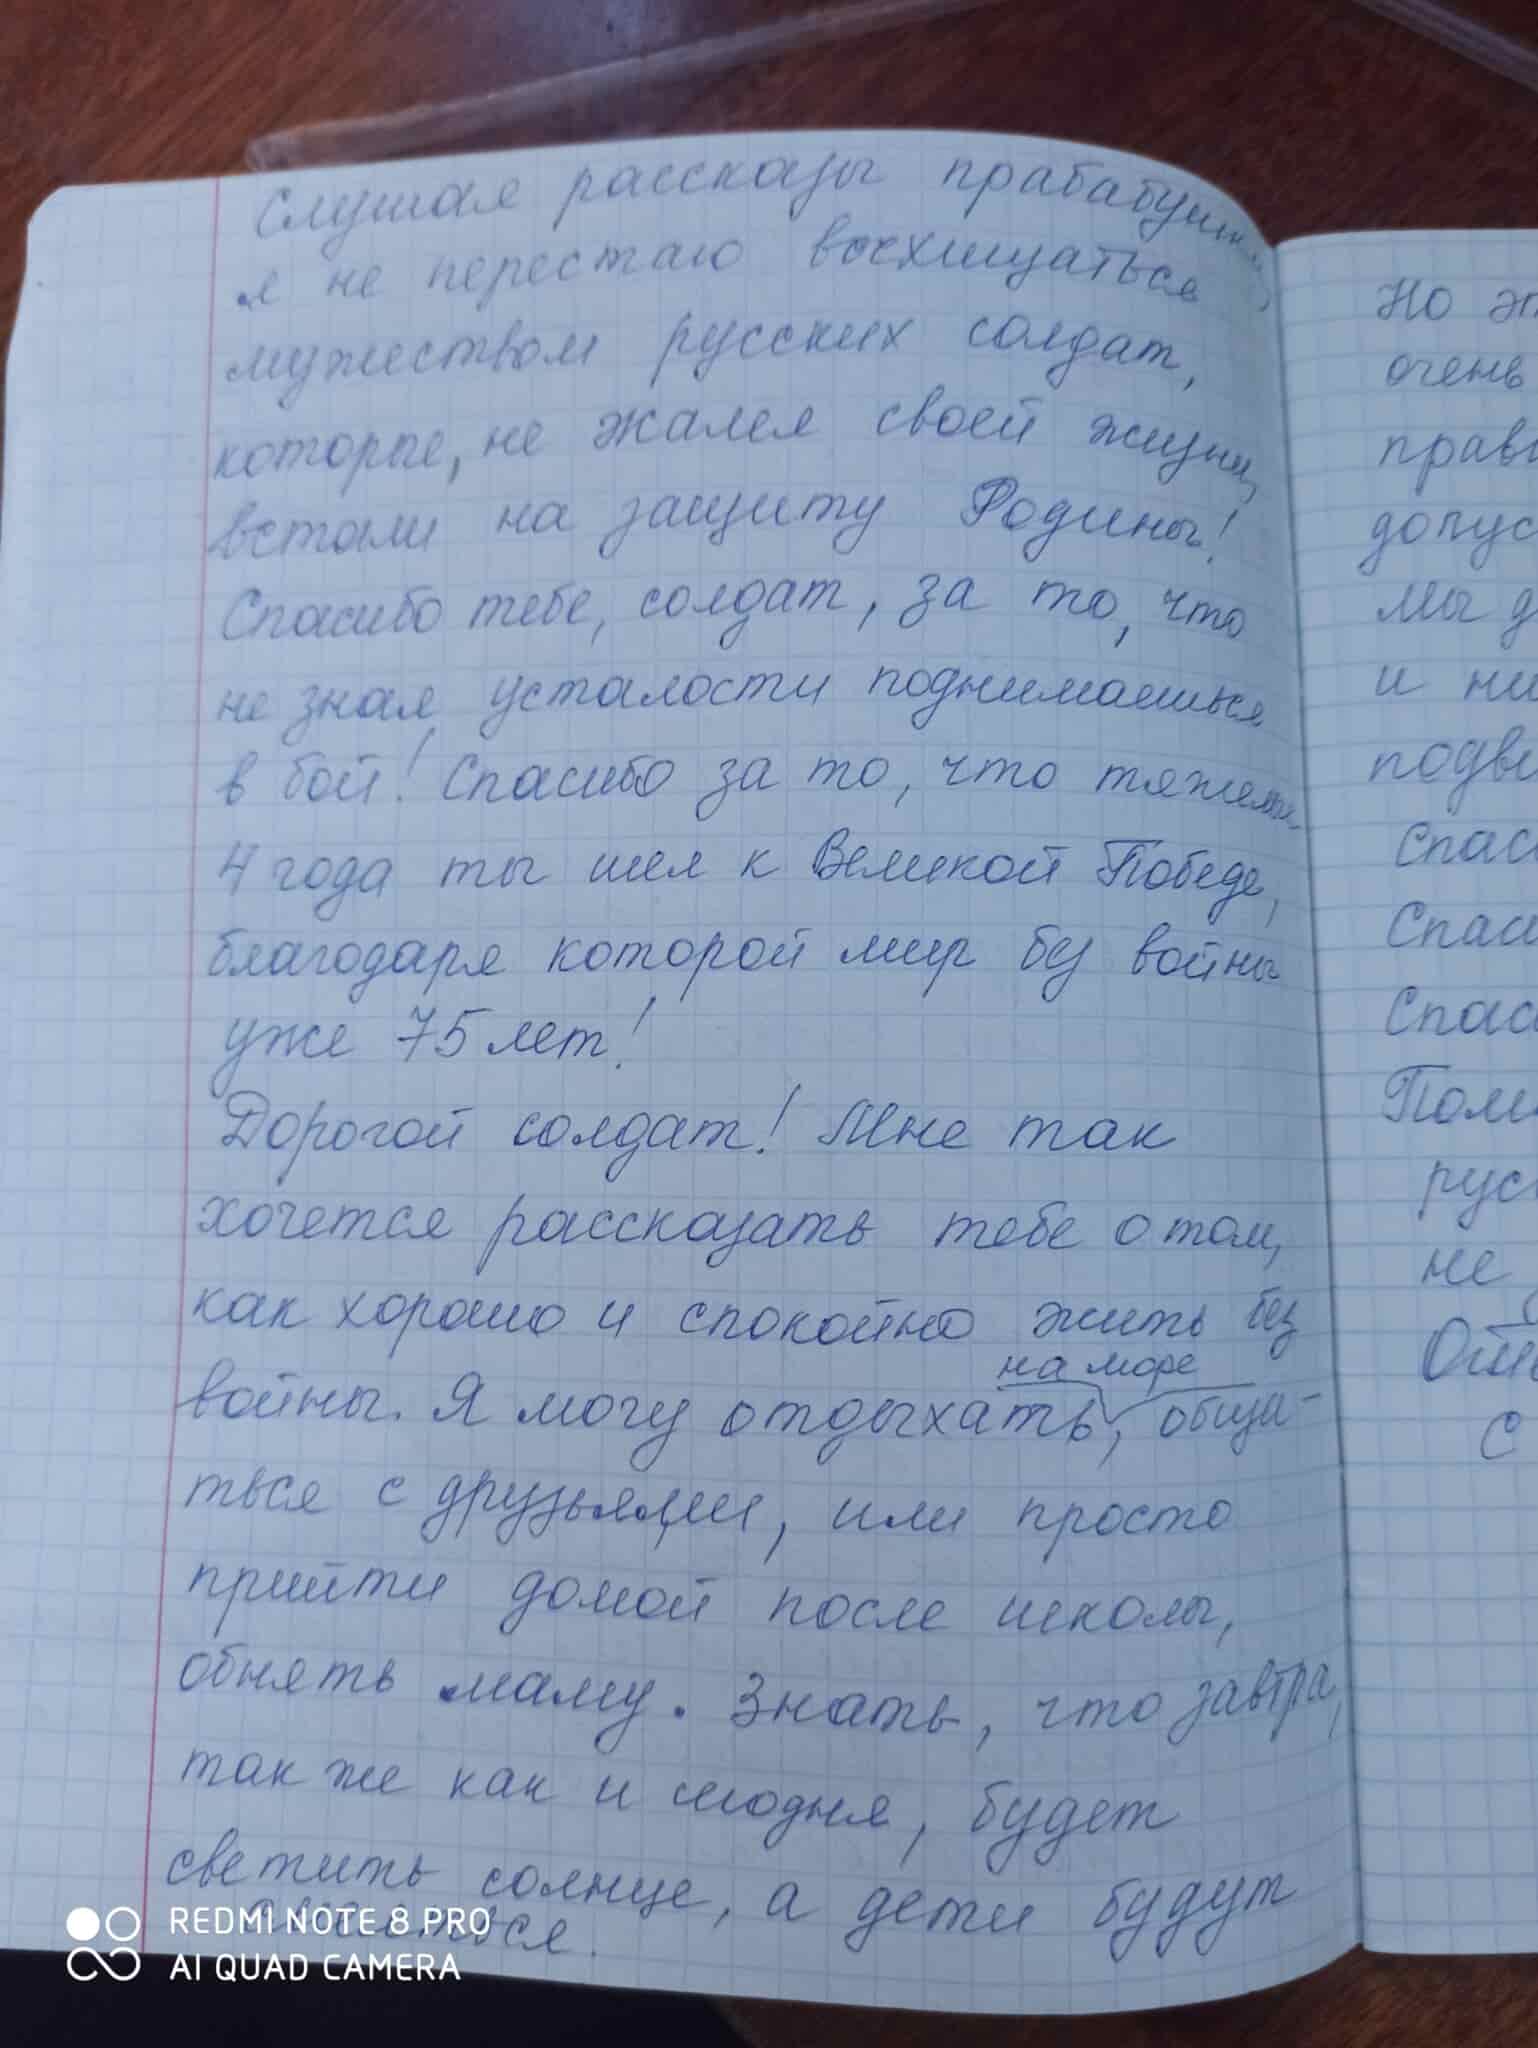 Слушая рассказы прабабушки,
я не перестаю восхищаться
мужеством русских солдат,
которые, не жалея своей жизни,
встали на защиту Родины!
Спасибо тебе, солдат, за то, что
не зная усталости поднимаешься
в бой! Спасибо за то, что тяжелые
4 года ты шел к Великой Победе,
благодаря которой мир без войны
уже 75 лет!
Дорогой солдат! Мне так
хочется рассказать тебе о том,
как хорошо и спокойно жить без
на море
войны. Я могу отдыхать, обща-
ться с друзьями, или просто
прийти домой после школы,
обнять маму. Знать, что завтра,
так же как и сегодня, будет
светить солнце, а дети будут
Но эт
очень
прав
допус
мы д
и ни
подви
Спас
Спас
Спас
Пом
рус
не
С
REDMI NOTE 8 PRO
AI QUAD CAMERA